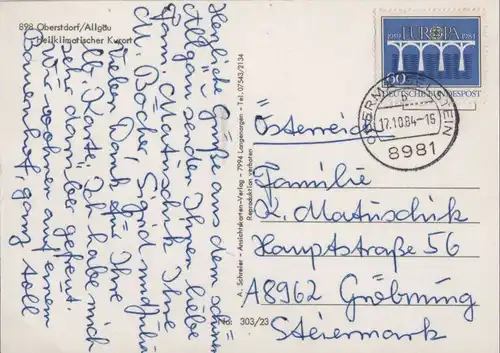 898 Oberstdorf/Allgäu
Heilklimatischer Kurort
Herzliche Grüße aus dem schönen
Allgäu sendet Ihnen liebe
Fam. Matuschik Ihre
M. Böcher, Sigrid und Julia
Vielen Dank für Ihre
lb. Karte, ich habe mich
sehr darüber gefreut.
Wir wohnen auf einem
Bauernhof, ganz toll
A. Schreier - Ansichtskarten-Verlag - 7994 Langenargen - Tel. 07543/2134
Reproduktion verboten
No: 303/23
EUROPA
1959 1984
60
DEUTSCHE BUNDESPOST
17.10.84-16
8981
Österreich
Familie
Matuschik
Hauptstraße 56
A8962 Gröbming
Steiermark